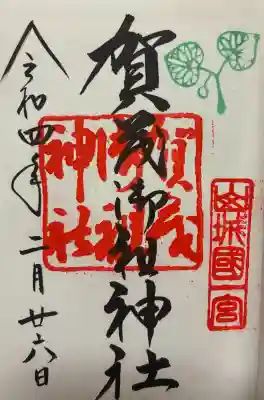 山城國一宮
賀茂御祖神社
賀茂
御祖
神社
令和四年二月廿六日